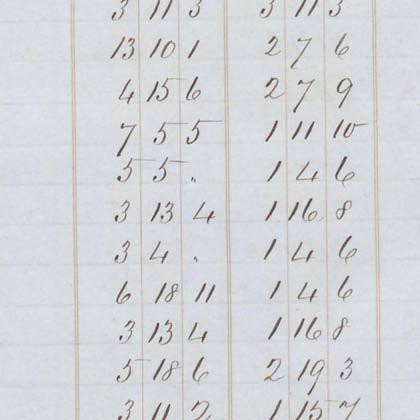 3 11 3 3 11 3
13 10 1 2 7 6
4 15 6 2 7 9
7 5 5 1 11 10
5 5 „ 1 4 6
3 13 4 1 16 8
3 4 „ 1 4 6
6 18 11 1 4 6
3 13 4 1 16 8
5 18 6 2 19 3
3 11 2 1 15 7